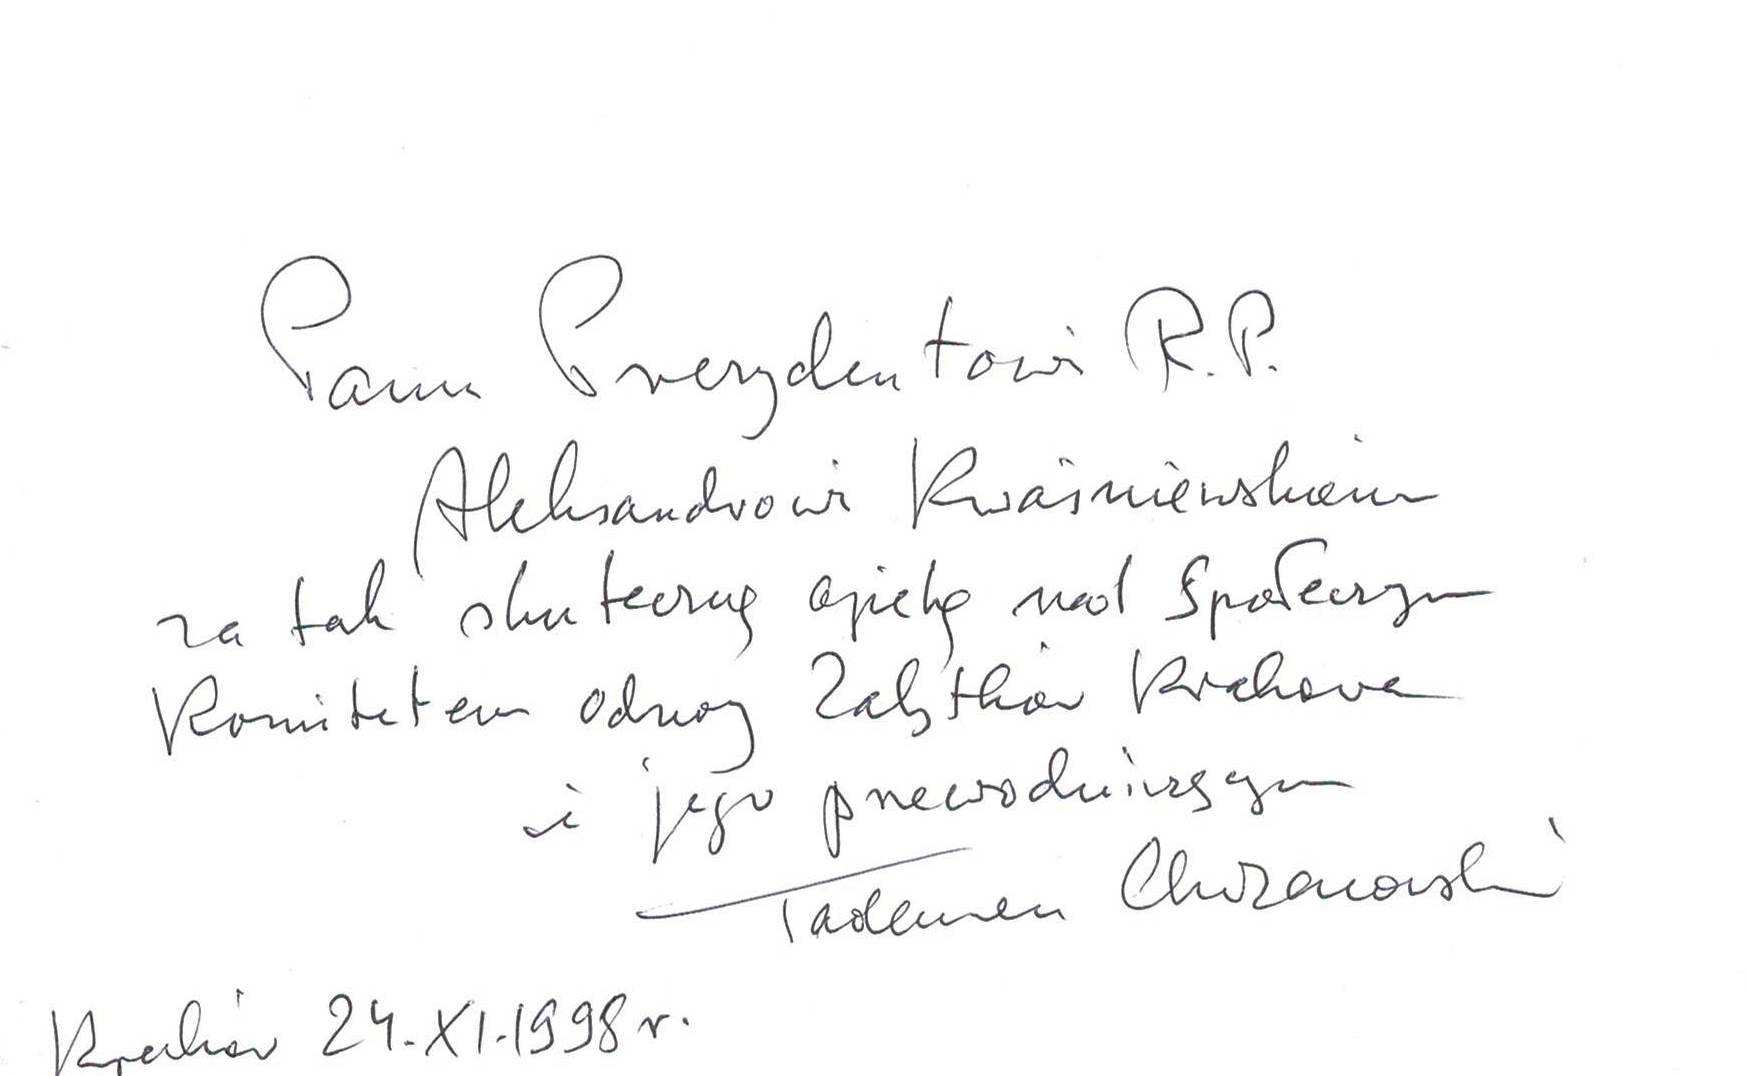 Panu Prezydentowi R.P.
Aleksandrowi Kwaśniewskiemu
za tak skuteczną opiekę nad Społecznym
Komitetem Odnowy Zabytków Krakowa
i jego przewodniczącym
Tadeusz Chrzanowski
Kraków 24.XI.1998 r.